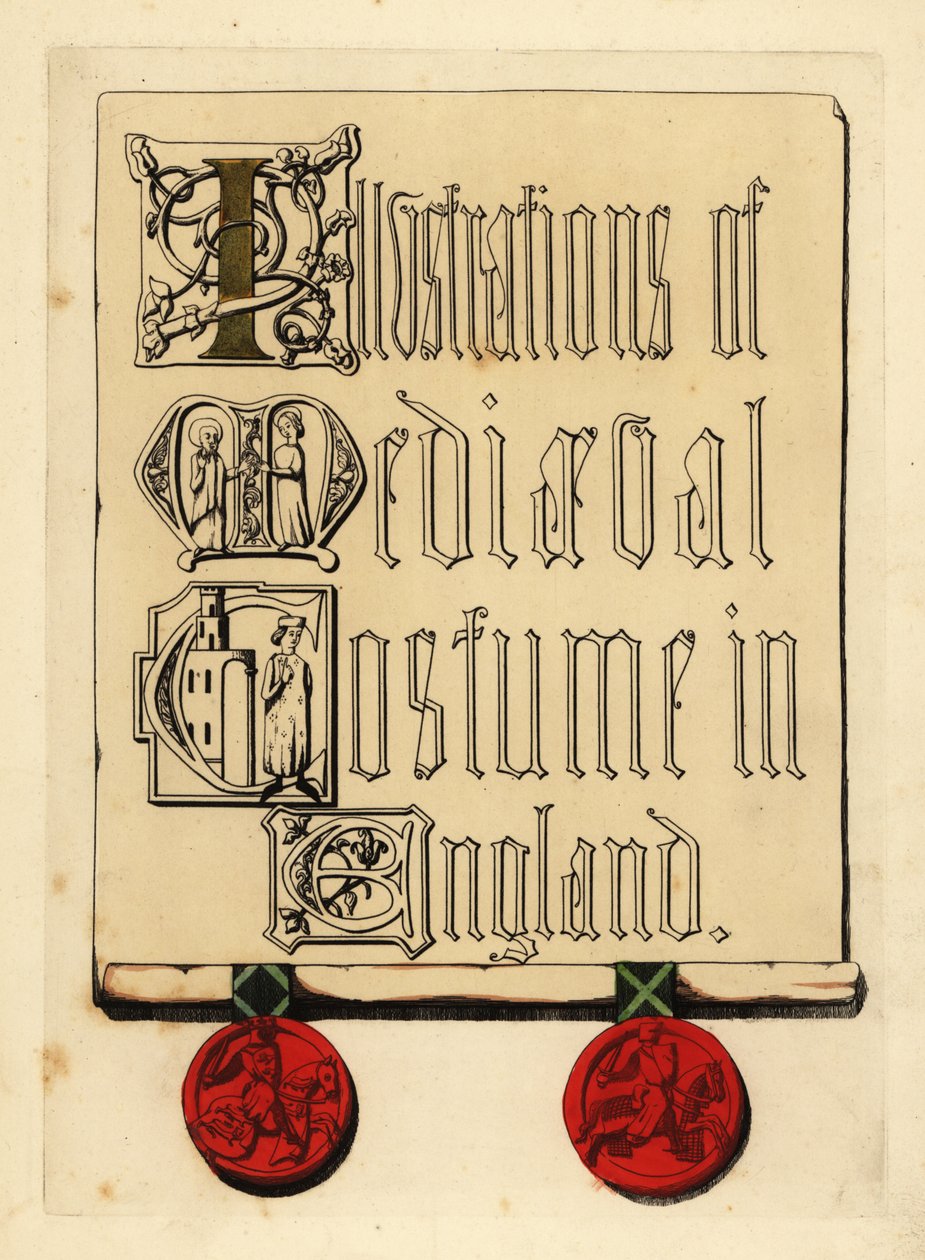 Illustrations of
Mediæval
Costume in
England.